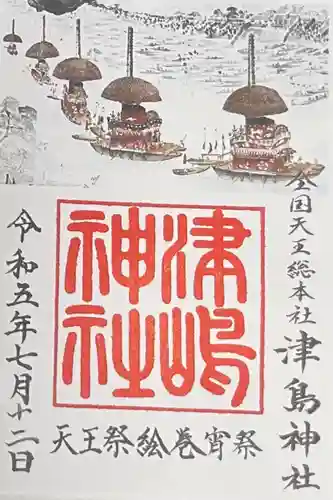 全国天王総本社 津島神社
津嶋
神社
令和五年七月十二日
天王祭絵巻宵祭